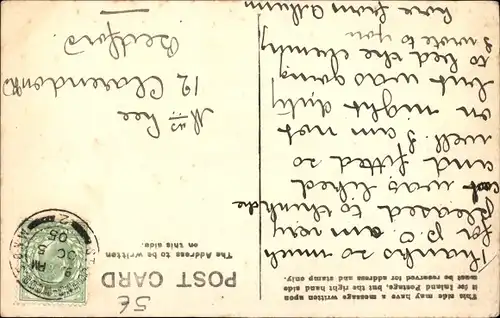 This side may have a message written upon
it for Inland Postage, but the right hand side
must be reserved for address and stamp only.
Thanks so much
for p.c. am very
pleased to think
coat was liked
and fitted so
well. I am not
on night duty
but was going
to bed the
I wrote to you
here from
POST CARD
The Address to be written
on this side.
5£
OC 5
05
Mrs Lee
12 Clarendon Rd
Bedford